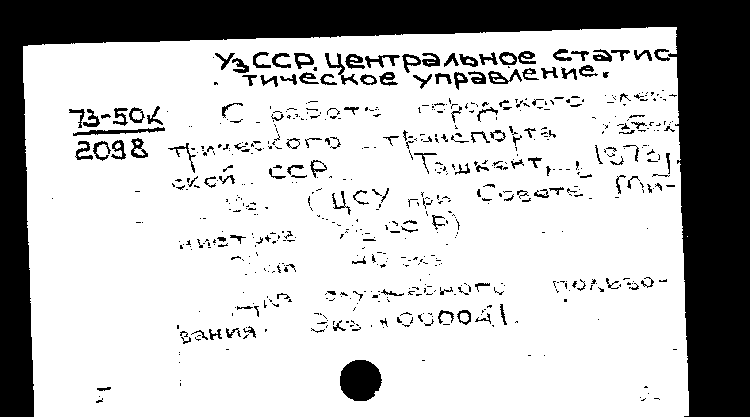 УзССР. Центральное статис-
тическое управление.
73-50К
2098
О работе городского элек-
трического транспорта Узбек-
ской ССР. Ташкент, 1973г.
(ЦСУ при Совете Ми-
нистров УзССР)
40 экз
Для служебного пользо-
вания. Экз. *000041.